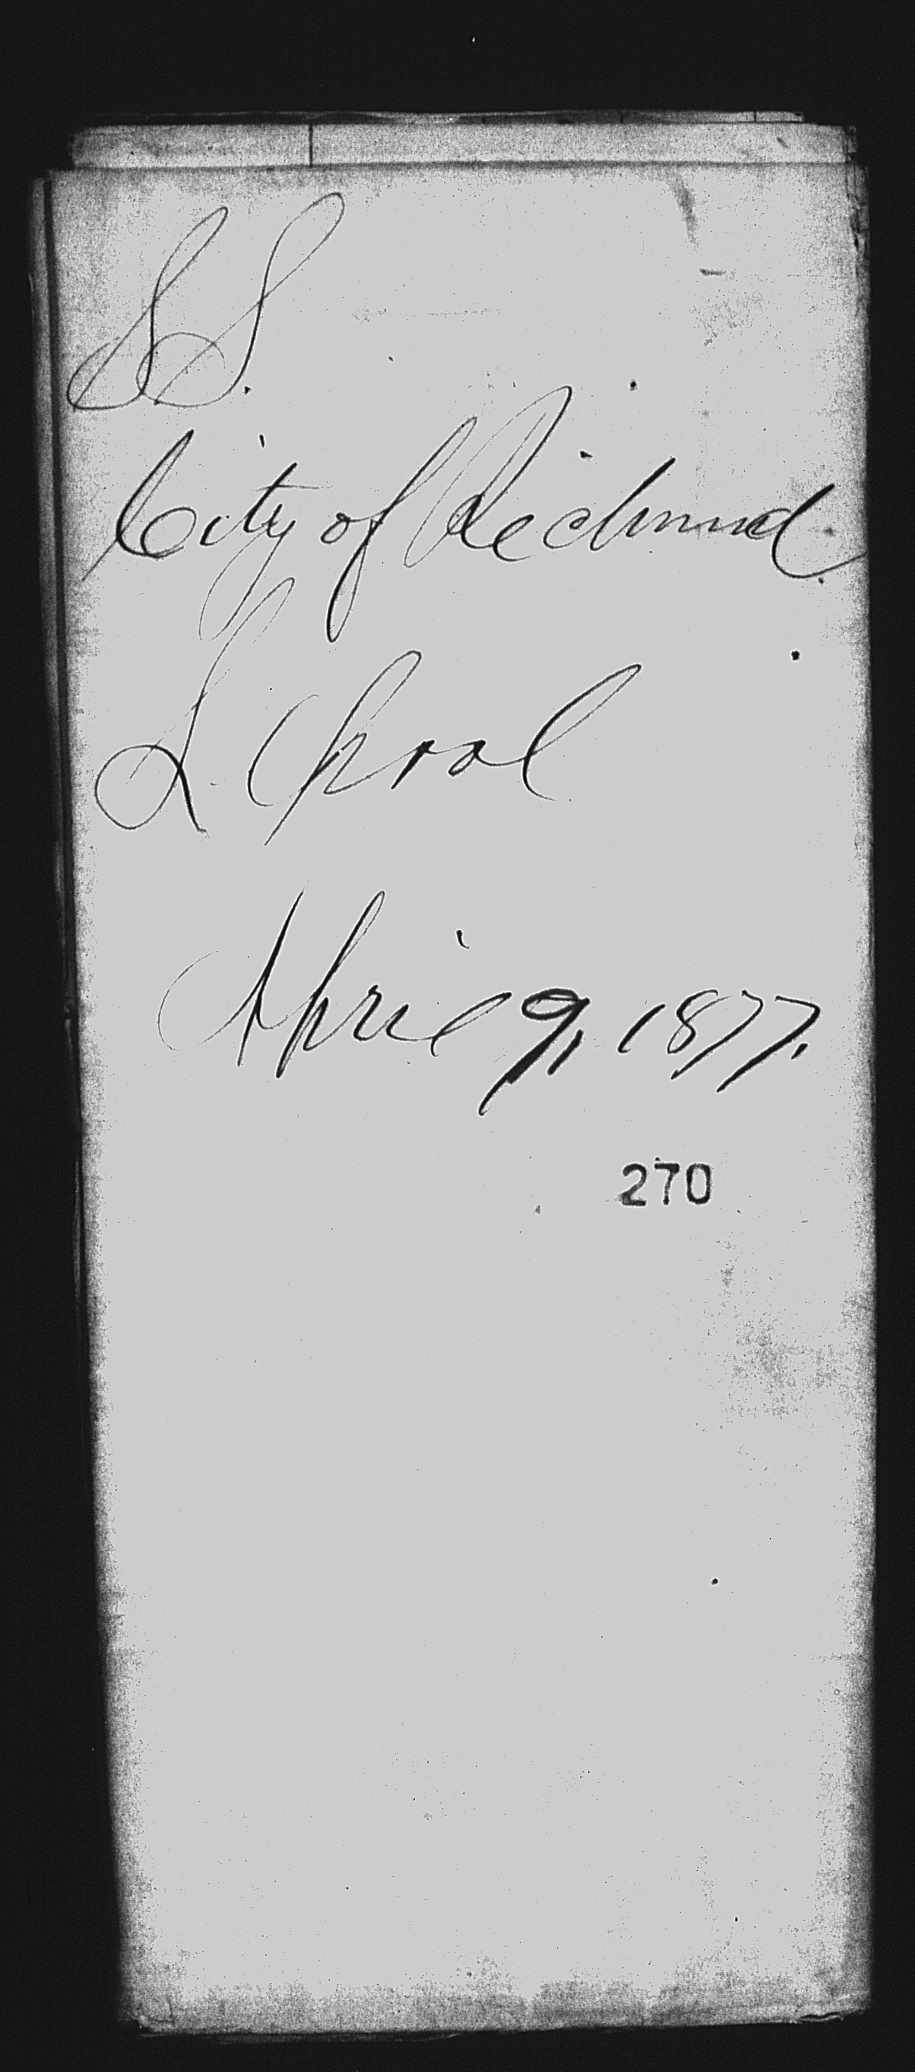 S S.
City of Richmond.
School
April 9, 1877.
270